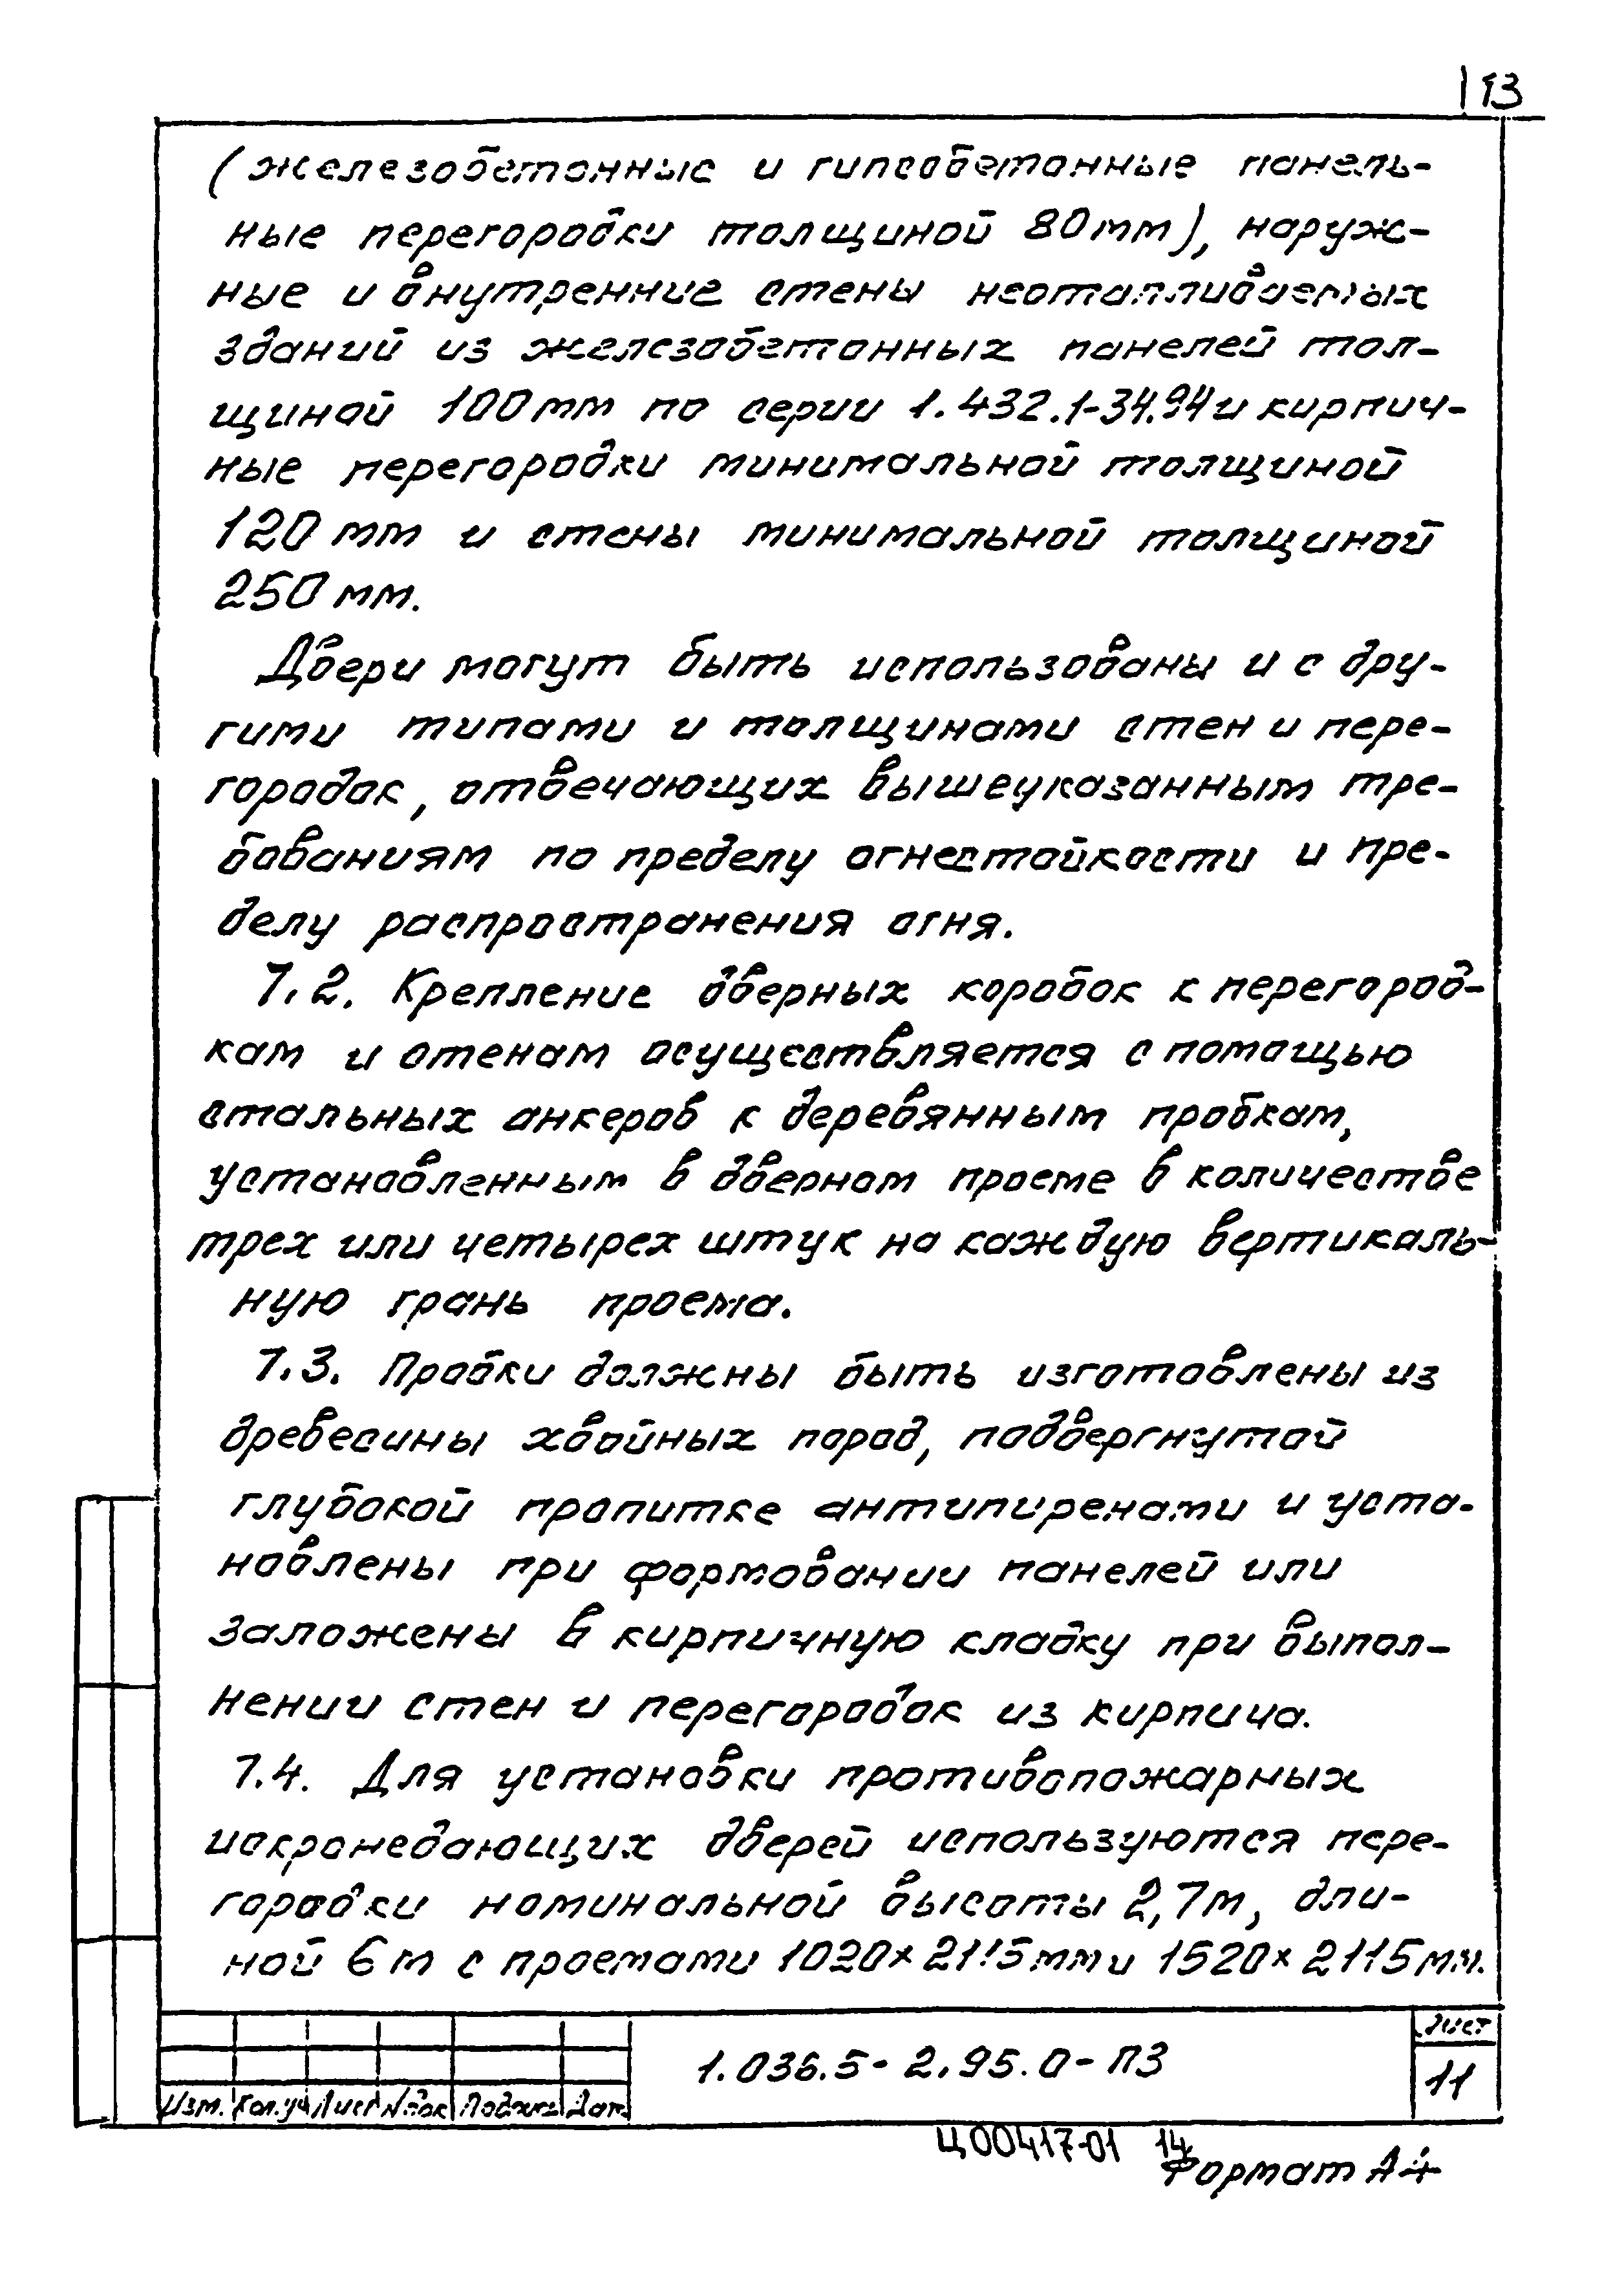 13
(железобетонные и гипсобетонные панель-
ные перегородки толщиной 80мм), наруж-
ные и внутренние стены неотапливаемых
зданий из железобетонных панелей тол-
щиной 100мм по серии 1.432.1-34.94 и кирпич-
ные перегородки минимальной толщиной
120 мм и стены минимальной толщиной
250 мм.
Двери могут быть использованы и с дру-
гими типами и толщинами стен и пере-
городок, отвечающих вышеуказанным тре-
бованиям по пределу огнестойкости и пре-
делу распространения огня.
7.2. Крепление дверных коробок к перегород-
кам и стенам осуществляется с помощью
стальных анкеров к деревянным пробкам,
установленным в дверном проеме в количестве
трех или четырех штук на каждую вертикаль-
ную грань проема.
7.3. Пробки должны быть изготовлены из
древесины хвойных пород, подвергнутой
глубокой пропитке антипиренами и уста-
новлены при формовании панелей или
заложены в кирпичную кладку при выпол-
нении стен и перегородок из кирпича.
7.4. Для установки противопожарных
искронедающих дверей используются пере-
городки номинальной высоты 2,7м, дли-
ной 6м с проемами 1020×2115мм и 1520×2115мм.
Изм. Кол.уч Лист №док Подпись Дат.
1.036.5-2.95.0-ПЗ
Лист
11
Ц00417-01 14
Формат А4